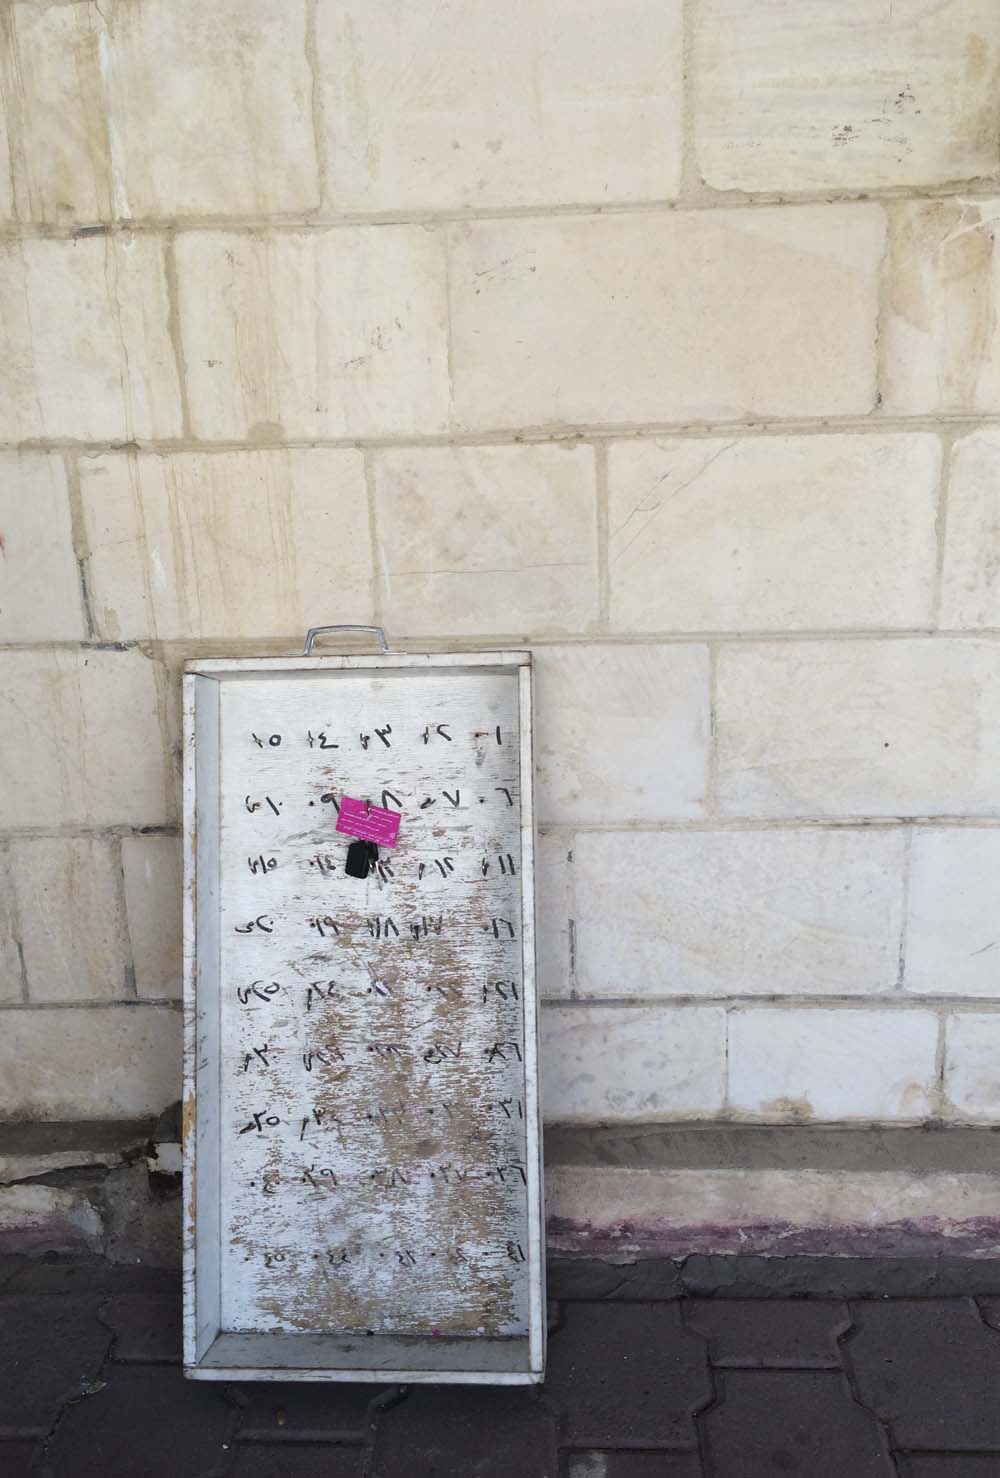 ١ ٢ ٣ ٤ ٥
٦ ٧ ٨ ٩ ١٠
١١ ١٢ ١٣ ١٤ ١٥
١٦ ١٧ ١٨ ١٩ ٢٠
٢١ ٢٢ ٢٣ ٢٤ ٢٥
٢٦ ٢٧ ٢٨ ٢٩ ٣٠
٣١ ٣٢ ٣٣ ٣٤ ٣٥
٣٦ ٣٧ ٣٨ ٣٩ ٤٠
٤١ ٤٢ ٤٣ ٤٤ ٤٥